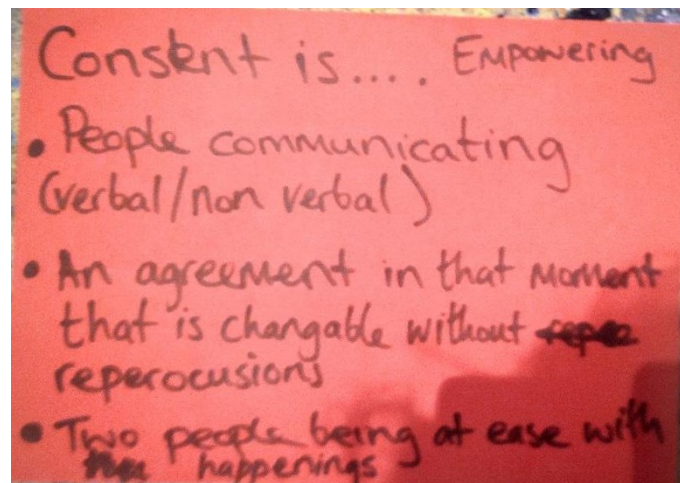 Consent is.... Empowering
• People communicating
(verbal/non verbal)
• An agreement in that moment
that is changable without
reperocusions
• Two people being at ease with
happenings